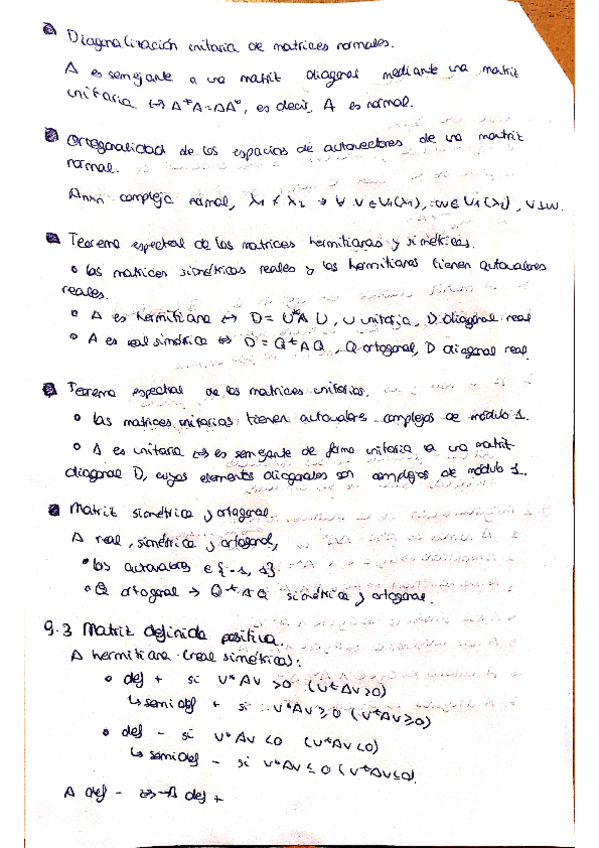 Diagonalización unitaria de matrices normales.
A es semejante a una matriz diagonal mediante una matriz
unitaria ↔ A*A=AA*, es decir, A es normal.
Ortogonalidad de los espacios de autovectores de una matriz
normal.
Anxn compleja normal, λ1 ≠ λ2 → ∀ v ∈ V1(λ1), w ∈ V1(λ2), v⊥w.
Teorema espectral de las matrices hermitianas y simétricas.
• las matrices simétricas reales y las hermitianas tienen autovalores
reales.
• A es hermitiana ↔ D = U*A U, U unitaria, D diagonal real
• A es real simétrica ↔ D = Qᵗ A Q, Q ortogonal, D diagonal real
Teorema espectral de las matrices unitarias.
• las matrices unitarias tienen autovalores complejos de módulo 1.
• A es unitaria ↔ es semejante de forma unitaria a una matriz
diagonal D, cuyos elementos diagonales son complejos de módulo 1.
Matriz simétrica y ortogonal.
A real, simétrica y ortogonal,
• los autovalores ∈ {-1, 1}
• Q ortogonal → Qᵗ A Q simétrica y ortogonal.
9.3 Matriz definida positiva.
A hermitiana (real simétrica):
• def + si v*Av >0 (vᵗAv>0)
↳ semidef + si v*Av ≥ 0 (vᵗAv≥0)
• def - si v*Av <0 (vᵗAv<0)
↳ semidef - si v*Av ≤ 0 (vᵗAv≤0).
A def - ↔ -A def +